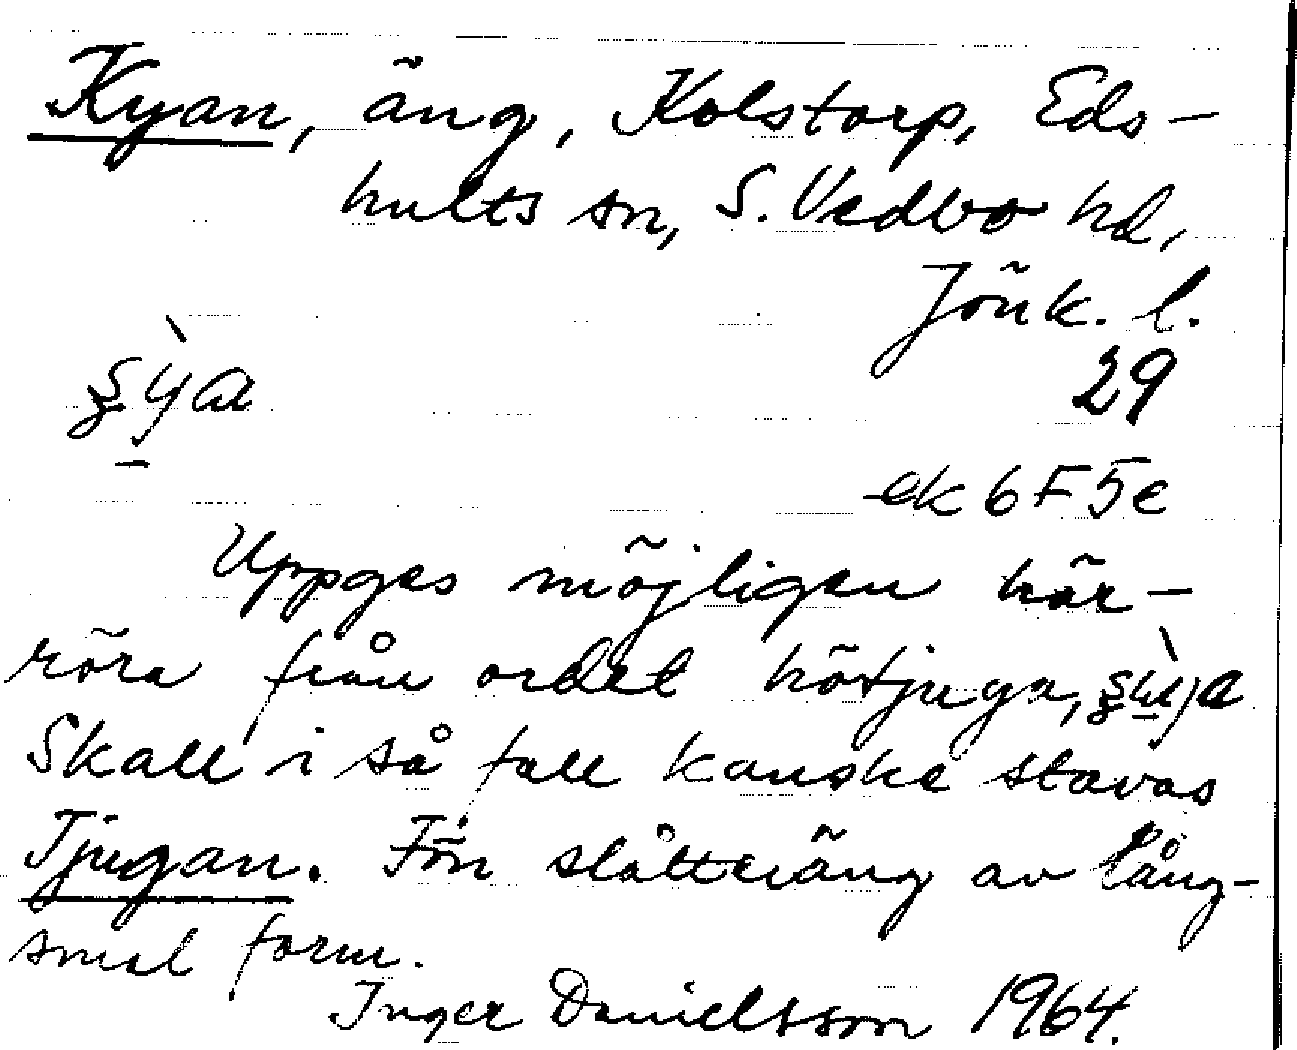 Kyan, äng, Kolstorp, Eds-
hults sn, S. Vedbo hd,
Jönk. l.
29
ek 6F5e
Uppges möjligen här-
röra från ordet hötjuga,
Skall i så fall kanske stavas
Tjugan. Förr slåtteräng av lång-
smal form.
Inger Danielsson 1964.